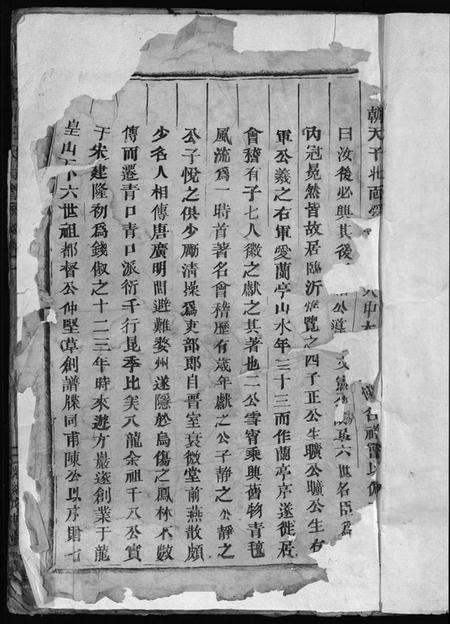 朝天子北面
曰汝後必興其後 六世名臣爲
內冠冕然皆故居臨沂 覽之四子正公生曠公曠公生右
軍公羲之右軍愛蘭亭山水年三十三而作蘭亭序遂徙居
會稽有子七人徽之獻之其著也二公雪宵乘興舊物青氊
風流爲一時首著名會稽歷有歲年獻之公子靜之公靜之
公子悅之俱少勵清操爲吏部郎自晋室衰微堂前燕散頗
少名人相傳唐廣明間避難婺州遂隱於烏傷之鳳林不數
傳而遷青口青口派衍千行昆季比美八龍余祖千八公實
于宋建隆初爲錢俶之十二三年時來遊方巖遂創業于龍
皇山下六世祖都督公仲堅草創譜牒同甫陳公以序則七